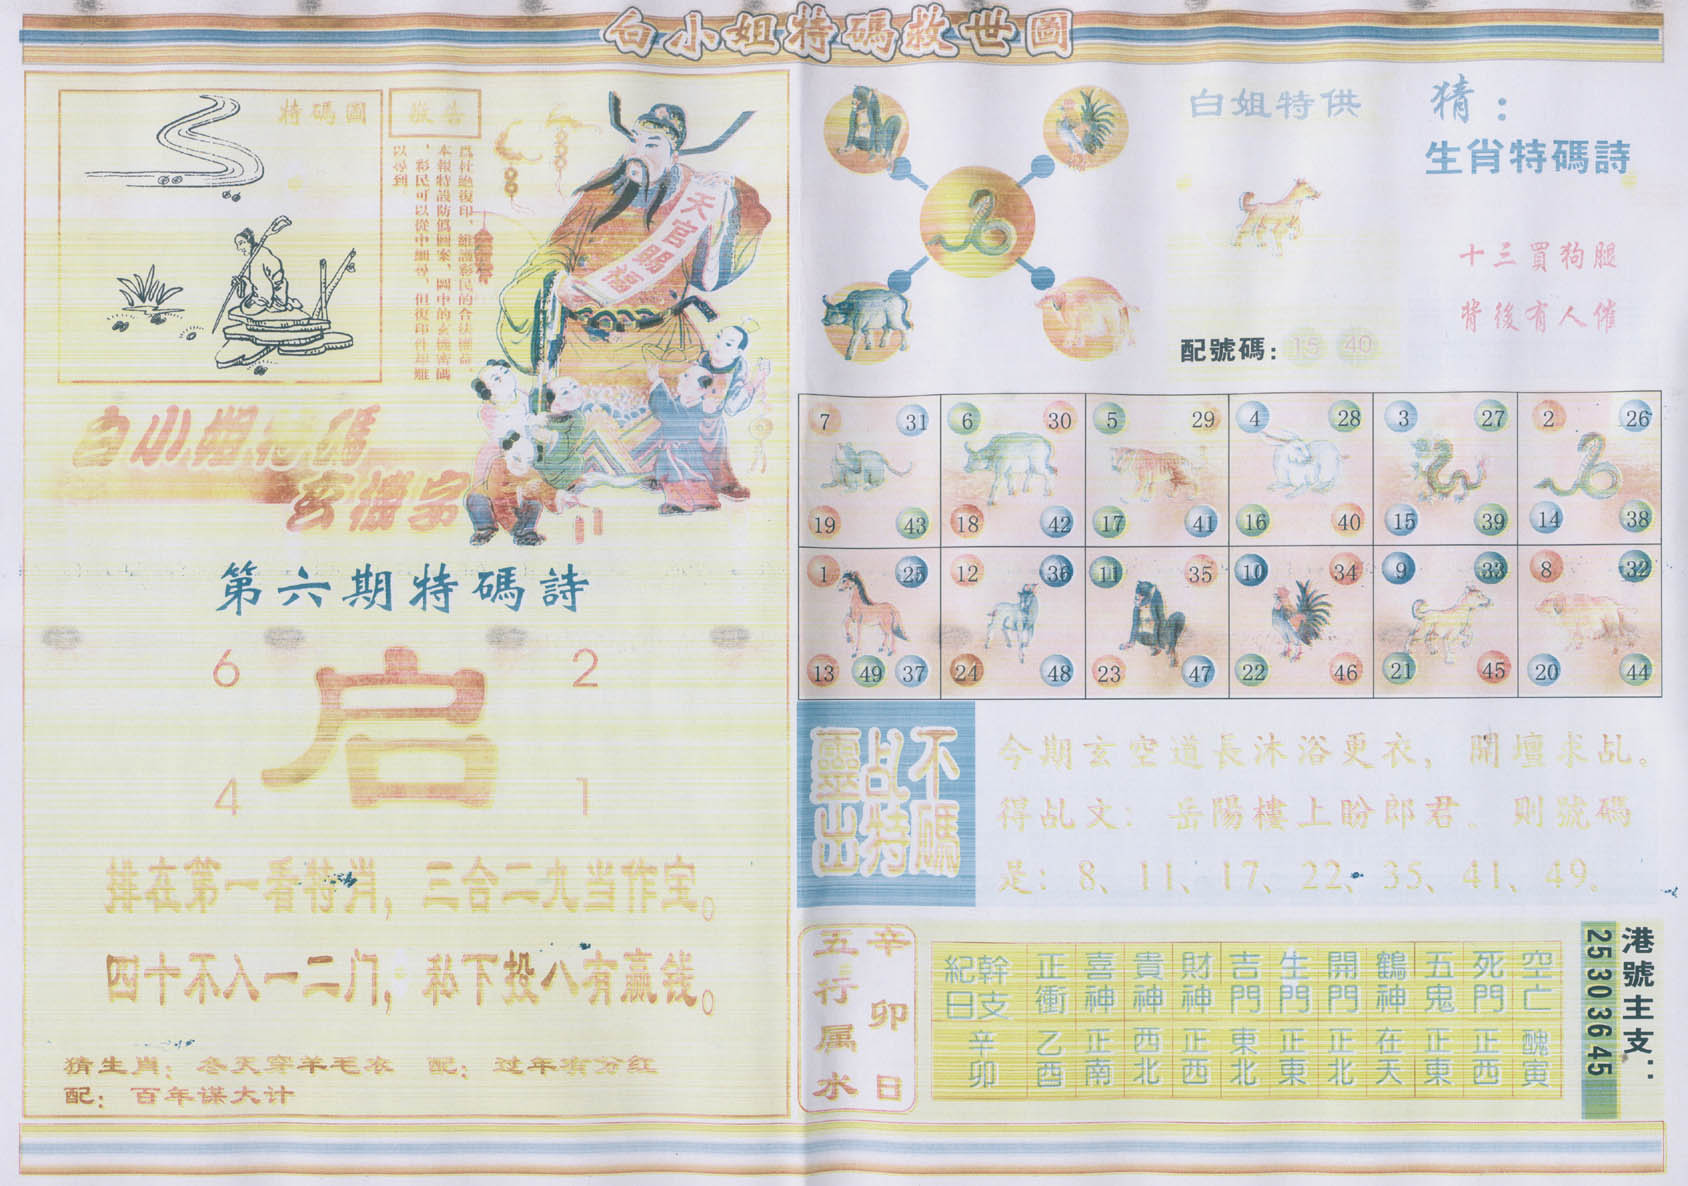 白小姐特碼救世圖
特碼圖
敬告
爲杜絶復印，維護彩民的合法權益，
本報特設防僞圖案，圖中的玄機密碼
，彩民可以從中細尋，但復印件却難
以尋到
天官賜福
白小姐特碼
玄機字
第六期特碼詩
6 2
启
4 1
排在第一看特肖，三合二九当作宝。
四十不入一二门，私下投八有赢钱。
猜生肖：冬天穿羊毛衣 配：过年有分红
配：百年谋大计
白姐特供
配號碼：15 40
猜：
生肖特碼詩
十三買狗腿
背後有人催
7 31 6 30 5 29 4 28 3 27 2 26
19 43 18 42 17 41 16 40 15 39 14 38
1 25 12 36 11 35 10 34 9 33 8 32
13 49 37 24 48 23 47 22 46 21 45 20 44
不碼
乩特
靈出
今期玄空道長沐浴更衣，開壇求乩。
得乩文：岳陽樓上盼郎君。則號碼
是：8、11、17、22、35、41、49。
辛卯日
五行属水
紀日 幹支 正衝 喜神 貴神 財神 吉門 生門 開門 鶴神 五鬼 死門 空亡
辛卯 乙酉 正南 西北 正西 東北 正東 正北 在天 正東 正西 醜寅
港號主支：
25 30 36 45